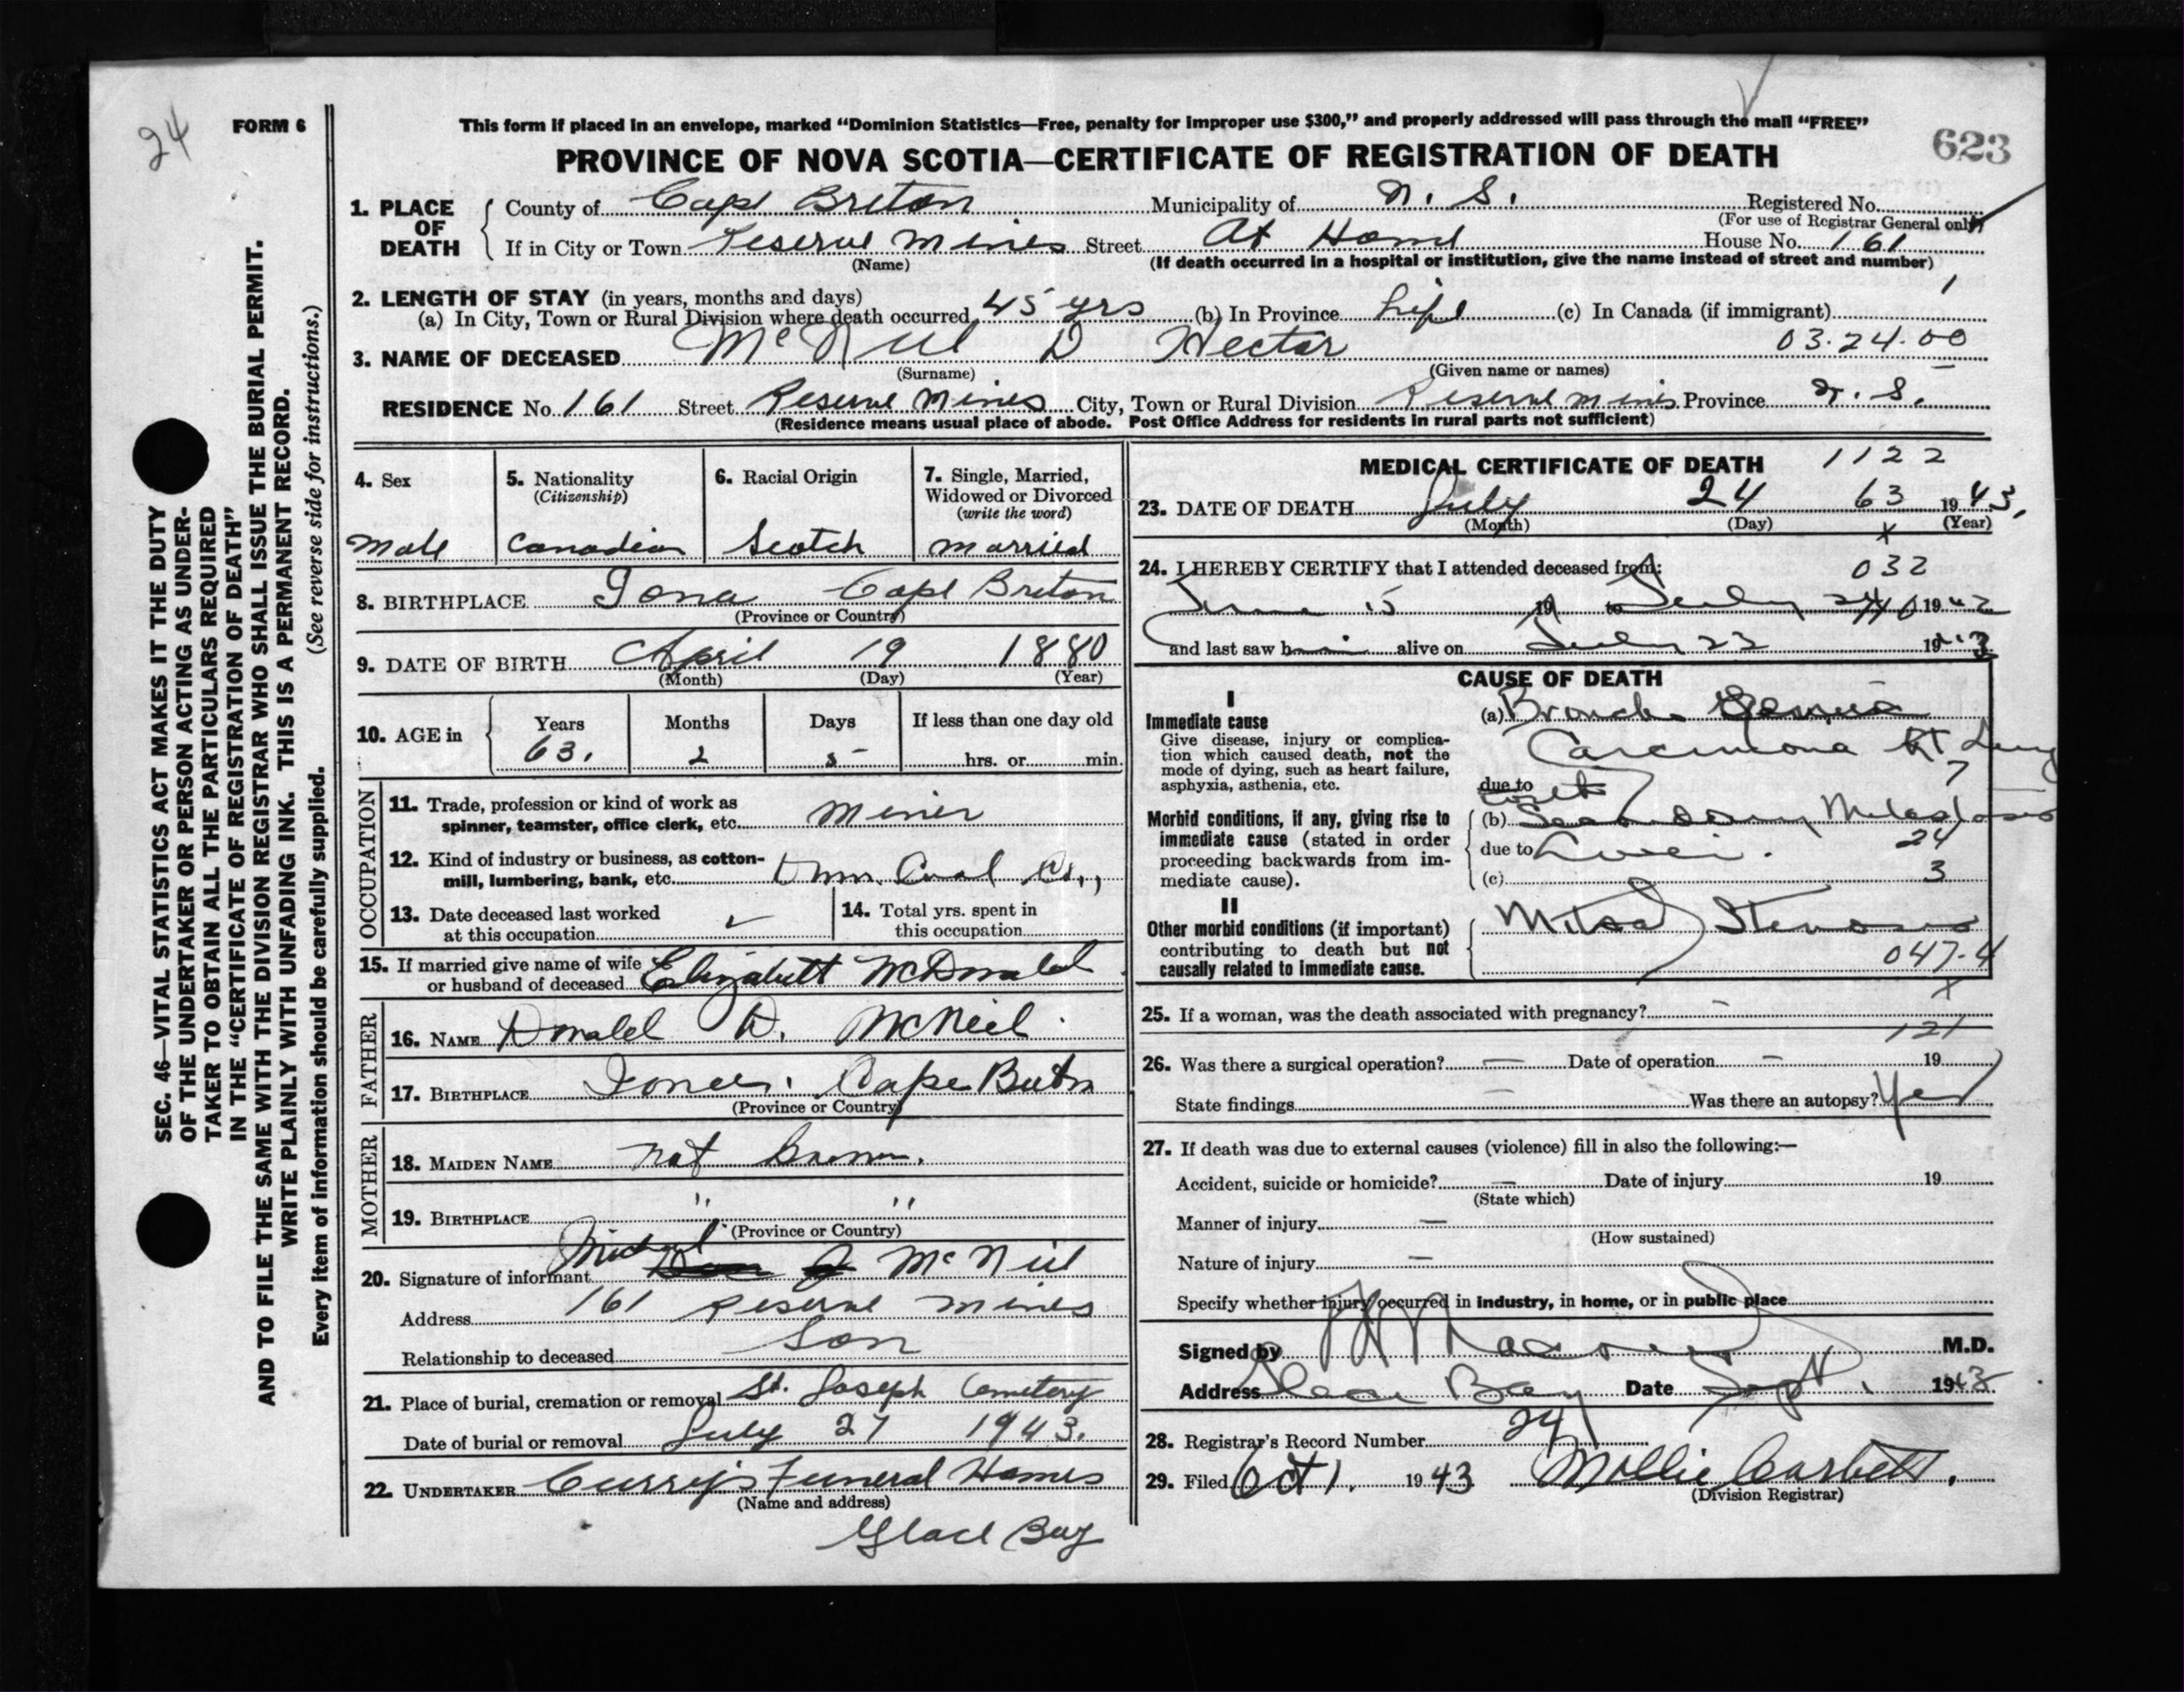 24
FORM 6
This form if placed in an envelope, marked “Dominion Statistics—Free, penalty for improper use $300,” and properly addressed will pass through the mail “FREE”
PROVINCE OF NOVA SCOTIA—CERTIFICATE OF REGISTRATION OF DEATH
623
1. PLACE OF DEATH
County of Cape Breton Municipality of N. S. Registered No.
(For use of Registrar General only)
If in City or Town Reserve Mines Street At Home House No. 161
(Name) (If death occurred in a hospital or institution, give the name instead of street and number)
1
2. LENGTH OF STAY (in years, months and days)
(a) In City, Town or Rural Division where death occurred 45 yrs (b) In Province Life (c) In Canada (if immigrant)
3. NAME OF DECEASED McNeil D Hector 03.24.00
(Surname) (Given name or names)
RESIDENCE No. 161 Street Reserve Mines City, Town or Rural Division Reserve Mines Province N. S.
(Residence means usual place of abode. Post Office Address for residents in rural parts not sufficient)
4. Sex
Male
5. Nationality
(Citizenship)
Canadian
6. Racial Origin
Scotch
7. Single, Married,
Widowed or Divorced
(write the word)
Married
8. BIRTHPLACE Iona Cape Breton
(Province or Country)
9. DATE OF BIRTH April 19 1880
(Month) (Day) (Year)
10. AGE in
Years Months Days If less than one day old
63. 2 5 hrs. or min.
OCCUPATION
11. Trade, profession or kind of work as
spinner, teamster, office clerk, etc. Miner
12. Kind of industry or business, as cotton-
mill, lumbering, bank, etc. Dom. Coal Co.,
13. Date deceased last worked
at this occupation
14. Total yrs. spent in
this occupation
15. If married give name of wife
or husband of deceased Elizabeth McDonald
FATHER
16. NAME Donald D. McNeil
17. BIRTHPLACE Iona. Cape Breton
(Province or Country)
MOTHER
18. MAIDEN NAME not known.
19. BIRTHPLACE " "
(Province or Country)
20. Signature of informant Michael McNeil
Address 161 Reserve Mines
Relationship to deceased Son
21. Place of burial, cremation or removal St. Joseph Cemetery
Date of burial or removal July 27 1943.
22. UNDERTAKER Curry's Funeral Homes
(Name and address)
Glace Bay
MEDICAL CERTIFICATE OF DEATH 1122
23. DATE OF DEATH July 24 63 1943.
(Month) (Day) (Year)
x
24. I HEREBY CERTIFY that I attended deceased from: 032
June 15 19 to July 24 19
and last saw him alive on July 23 1943
CAUSE OF DEATH
I
Immediate cause
Give disease, injury or complica-
tion which caused death, not the
mode of dying, such as heart failure,
asphyxia, asthenia, etc.
(a) Broncho
Carcinoma Rt Lung
7
due to
with
Morbid conditions, if any, giving rise to
immediate cause (stated in order
proceeding backwards from im-
mediate cause).
(b) Secondary Metastasis
24
due to
(c) 3
II
Other morbid conditions (if important)
contributing to death but not
causally related to immediate cause.
Mitral Stenosis
047-4
x
25. If a woman, was the death associated with pregnancy? –
121
26. Was there a surgical operation? — Date of operation — 19
State findings — Was there an autopsy? Yes
27. If death was due to external causes (violence) fill in also the following:—
Accident, suicide or homicide? — Date of injury 19
(State which)
Manner of injury —
(How sustained)
Nature of injury —
Specify whether injury occurred in industry, in home, or in public place
Signed by M.D.
Address Glace Bay Date Sept. 1943
28. Registrar's Record Number 24
29. Filed Oct 1. 1943 Mollie Corbett.
(Division Registrar)
SEC. 46—VITAL STATISTICS ACT MAKES IT THE DUTY
OF THE UNDERTAKER OR PERSON ACTING AS UNDER-
TAKER TO OBTAIN ALL THE PARTICULARS REQUIRED
IN THE “CERTIFICATE OF REGISTRATION OF DEATH”
AND TO FILE THE SAME WITH THE DIVISION REGISTRAR WHO SHALL ISSUE THE BURIAL PERMIT.
WRITE PLAINLY WITH UNFADING INK. THIS IS A PERMANENT RECORD.
Every item of information should be carefully supplied. (See reverse side for instructions.)